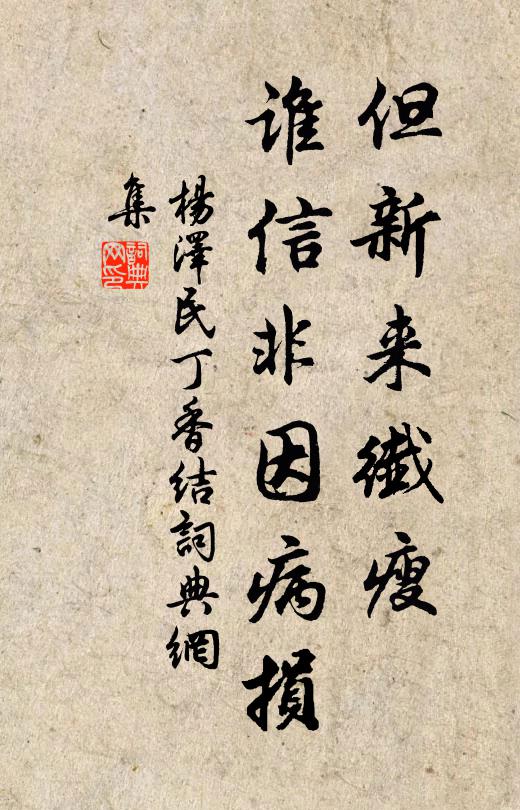 但新来纖瘦
誰信非因病損
楊澤民丁香结詞典網
集
詞典
网印